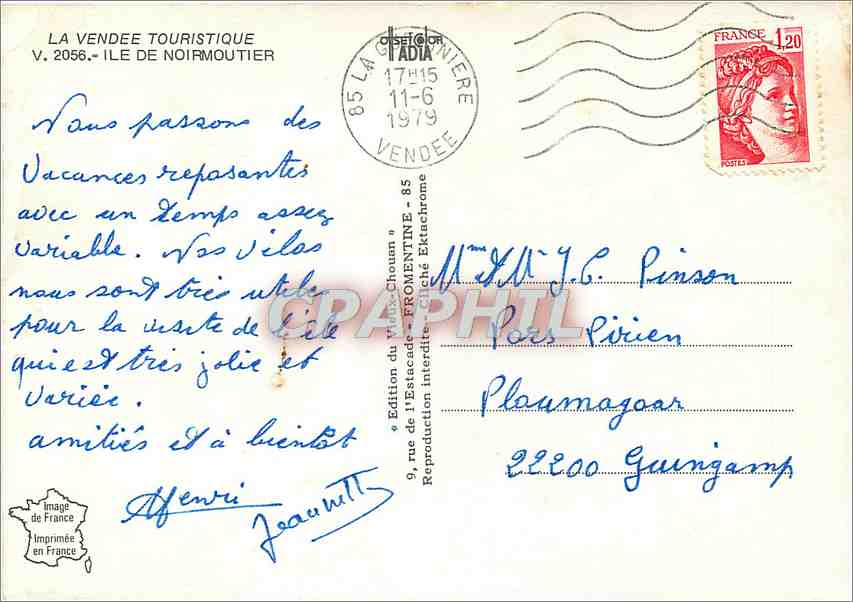 LA VENDEE TOURISTIQUE
V. 2056.- ILE DE NOIRMOUTIER
OFFSETCOLOR
IADIA
85 LA G NIERE
17H15
11-6
1979
VENDEE
FRANCE 1,20
POSTES
Nous passons des
vacances reposantes
avec un temps assez
variable. Nos vélos
nous sont très utiles
pour la visite de l'île
qui est très jolie et
variée.
amitiés et à bientôt
Henri
Jeannette
« Edition du Vieux-Chouan »
9, rue de l'Estacade - FROMENTINE - 85
Reproduction interdite - Cliché Ektachrome
Mme & Mr J.C. Pinson
Pors Pirien
Ploumagoar
22200 Guingamp
Image
de France
Imprimée
en France
CPAPHIL